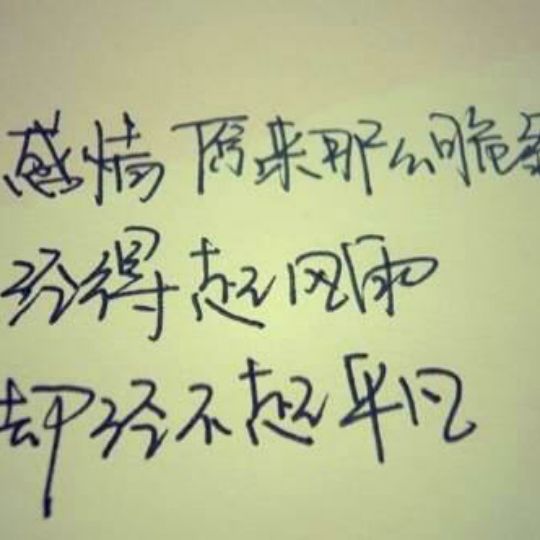 感情 原来那么脆弱
经得起风雨
却经不起平凡